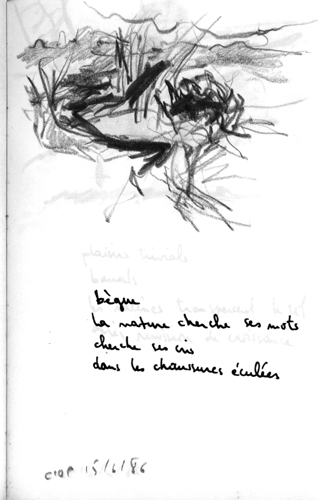 plaisirs triviaux
banals
bègue
la nature cherche ses mots
cherche ses cris
dans les chaussures éculées
15/6/86